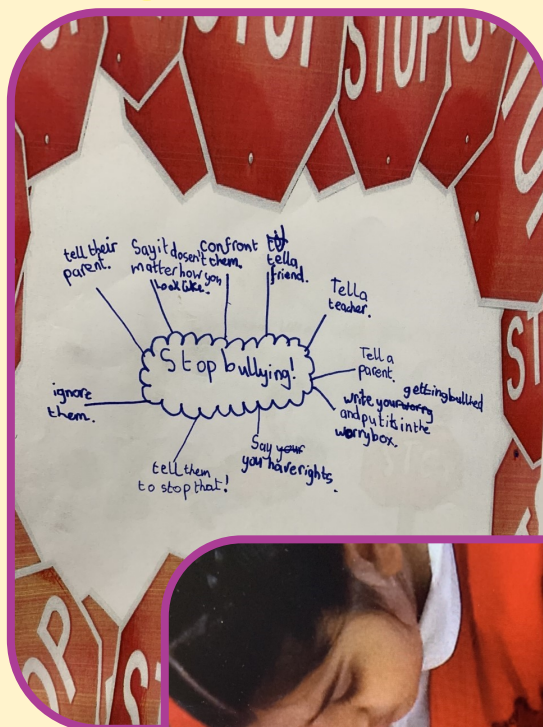 STOP
STOP
STOP
STOP
tell their
parent.
Say it dosen't
matter how you
look like.
confront
them.
tell a
friend.
Tell a
teacher.
Stop bullying!
Tell a
parent.
getting bullied
write your worry
and put it in the
worry box.
ignore
them.
tell them
to stop that!
Say your
you have rights.
STOP
STOP